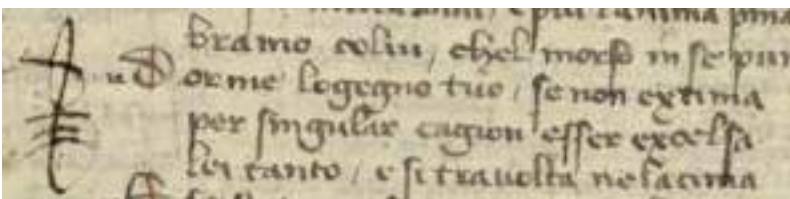 e piu lanima pma
bramo colui, chel morso in se pun
Dorme logegno tuo, se non extima
per singular cagion esser excelsa
lei tanto, e si travolta nela cima